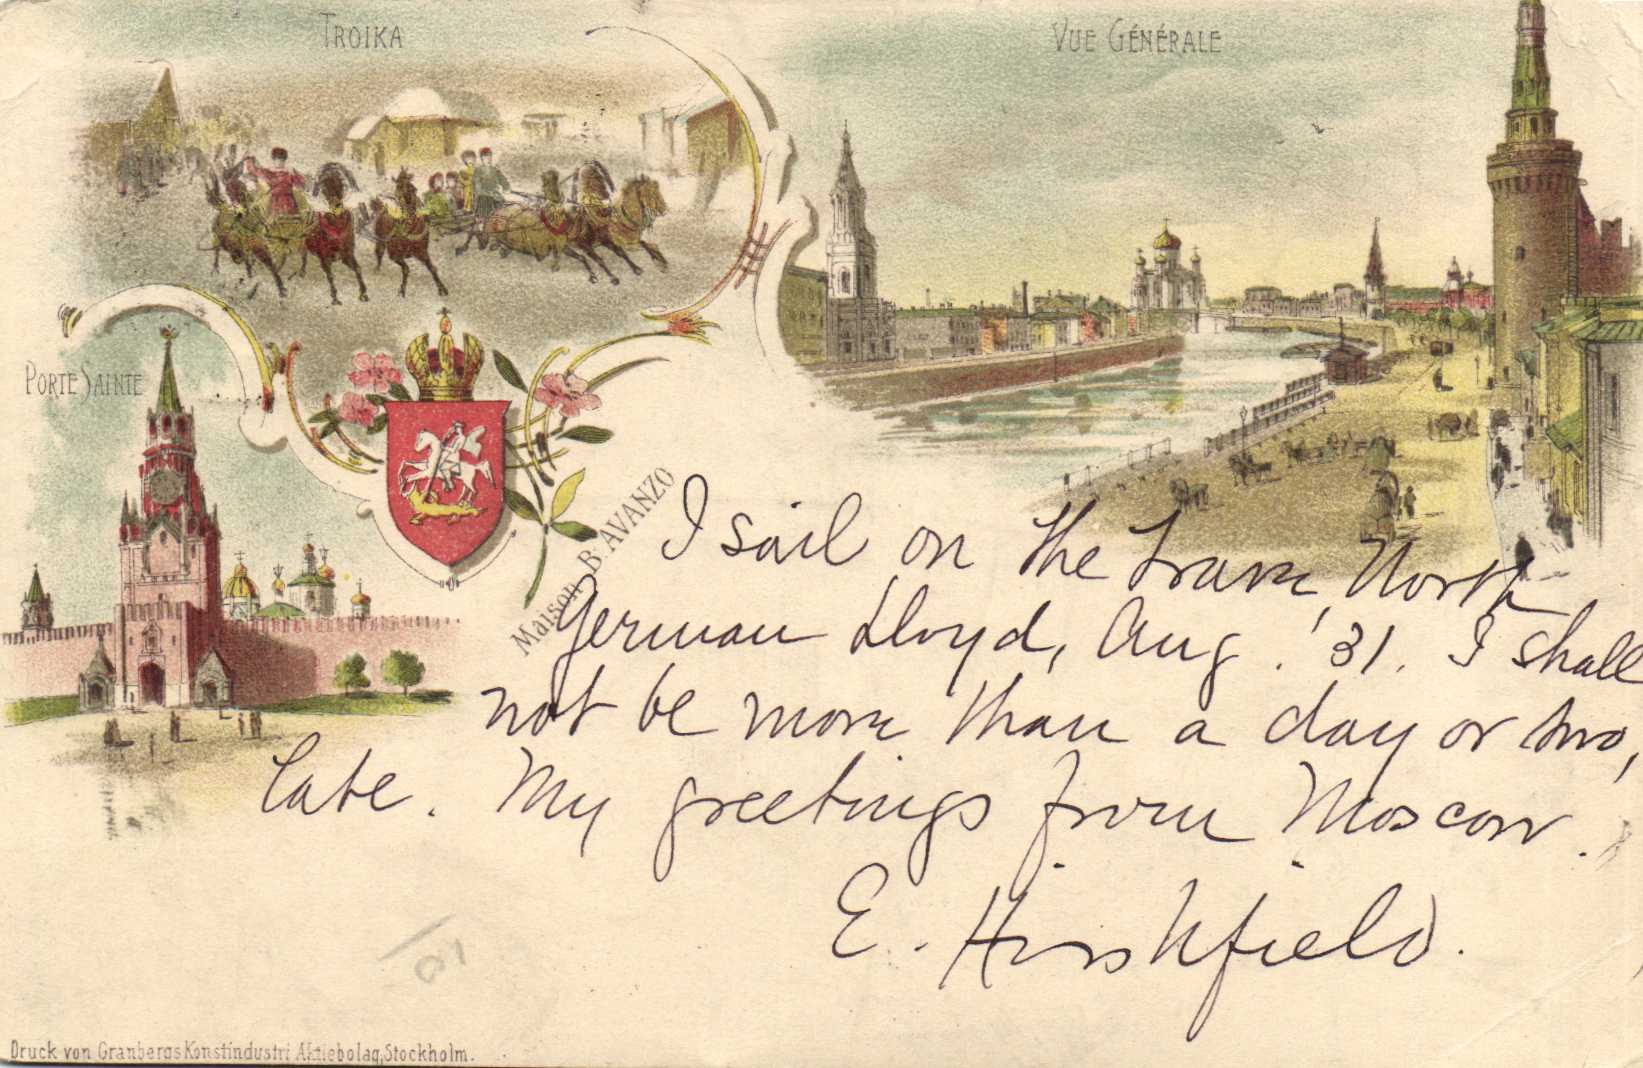 TROIKA
VUE GÉNÉRALE
PORTE SAINTE
Maison B. AVANZO
I sail on the Trave, North
German Lloyd, Aug. 31. I shall
not be more than a day or two,
late. My greetings from Moscow.
E. Hirshfield.
Druck von Granbergs Konstindustri Aktiebolag, Stockholm.